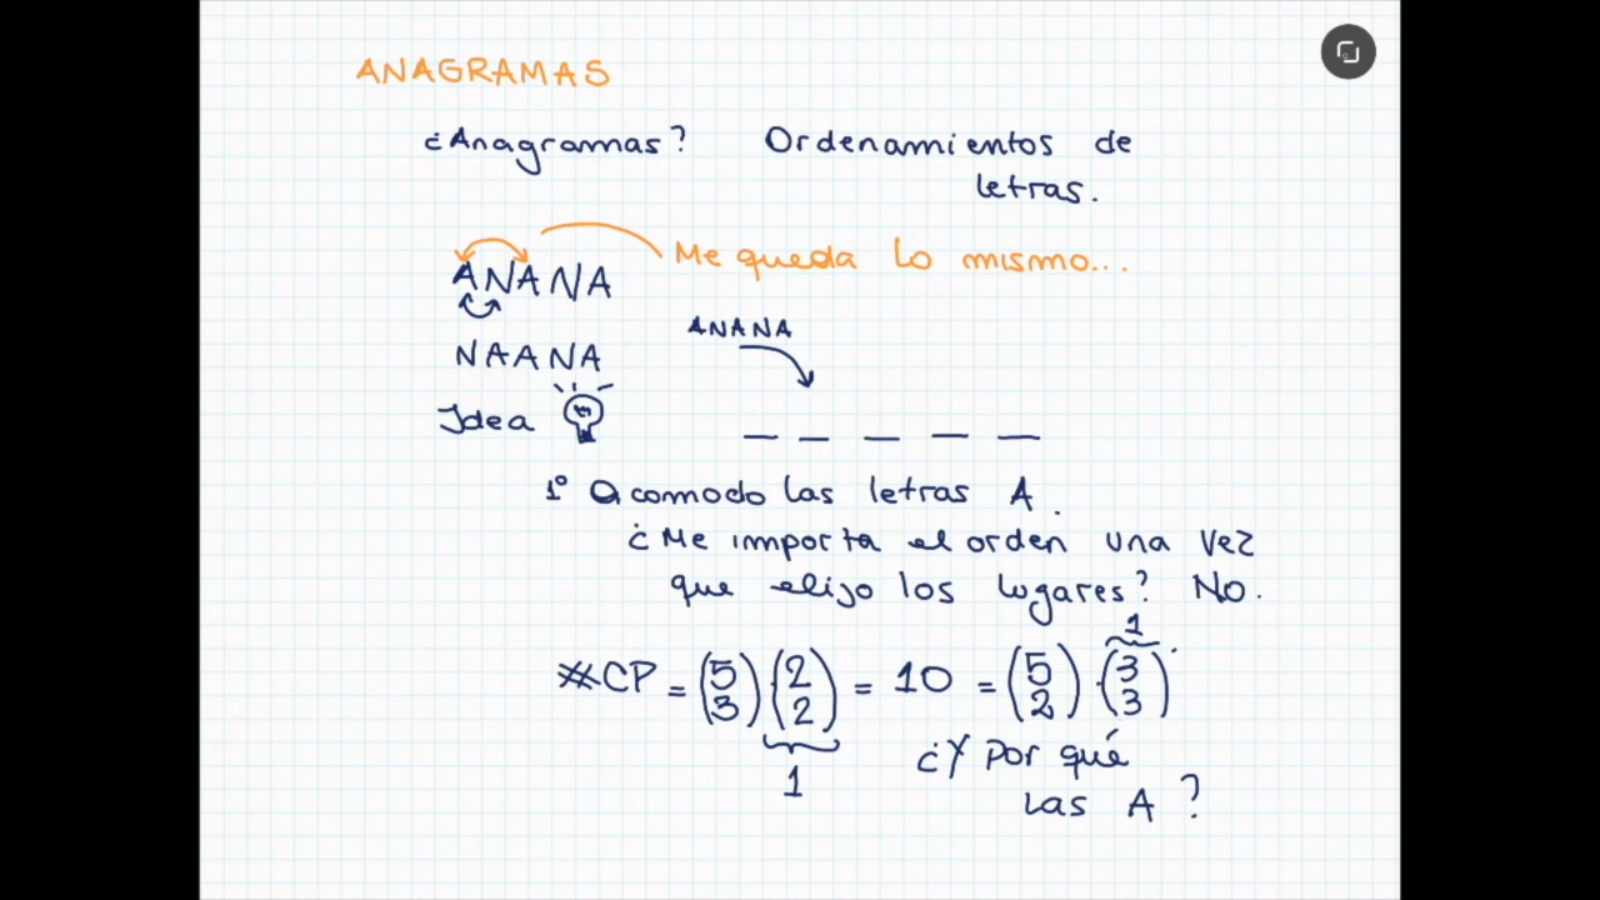 ANAGRAMAS
¿Anagramas? Ordenamientos de
letras.
ANANA Me queda lo mismo...
ANANA
NAANA
Idea
1º Acomodo las letras A.
¿Me importa el orden una vez
que elijo los lugares? No.
1
#CP = (5 3)(2 2) = 10 = (5 2)·(3 3).
1
¿Y por qué
las A?